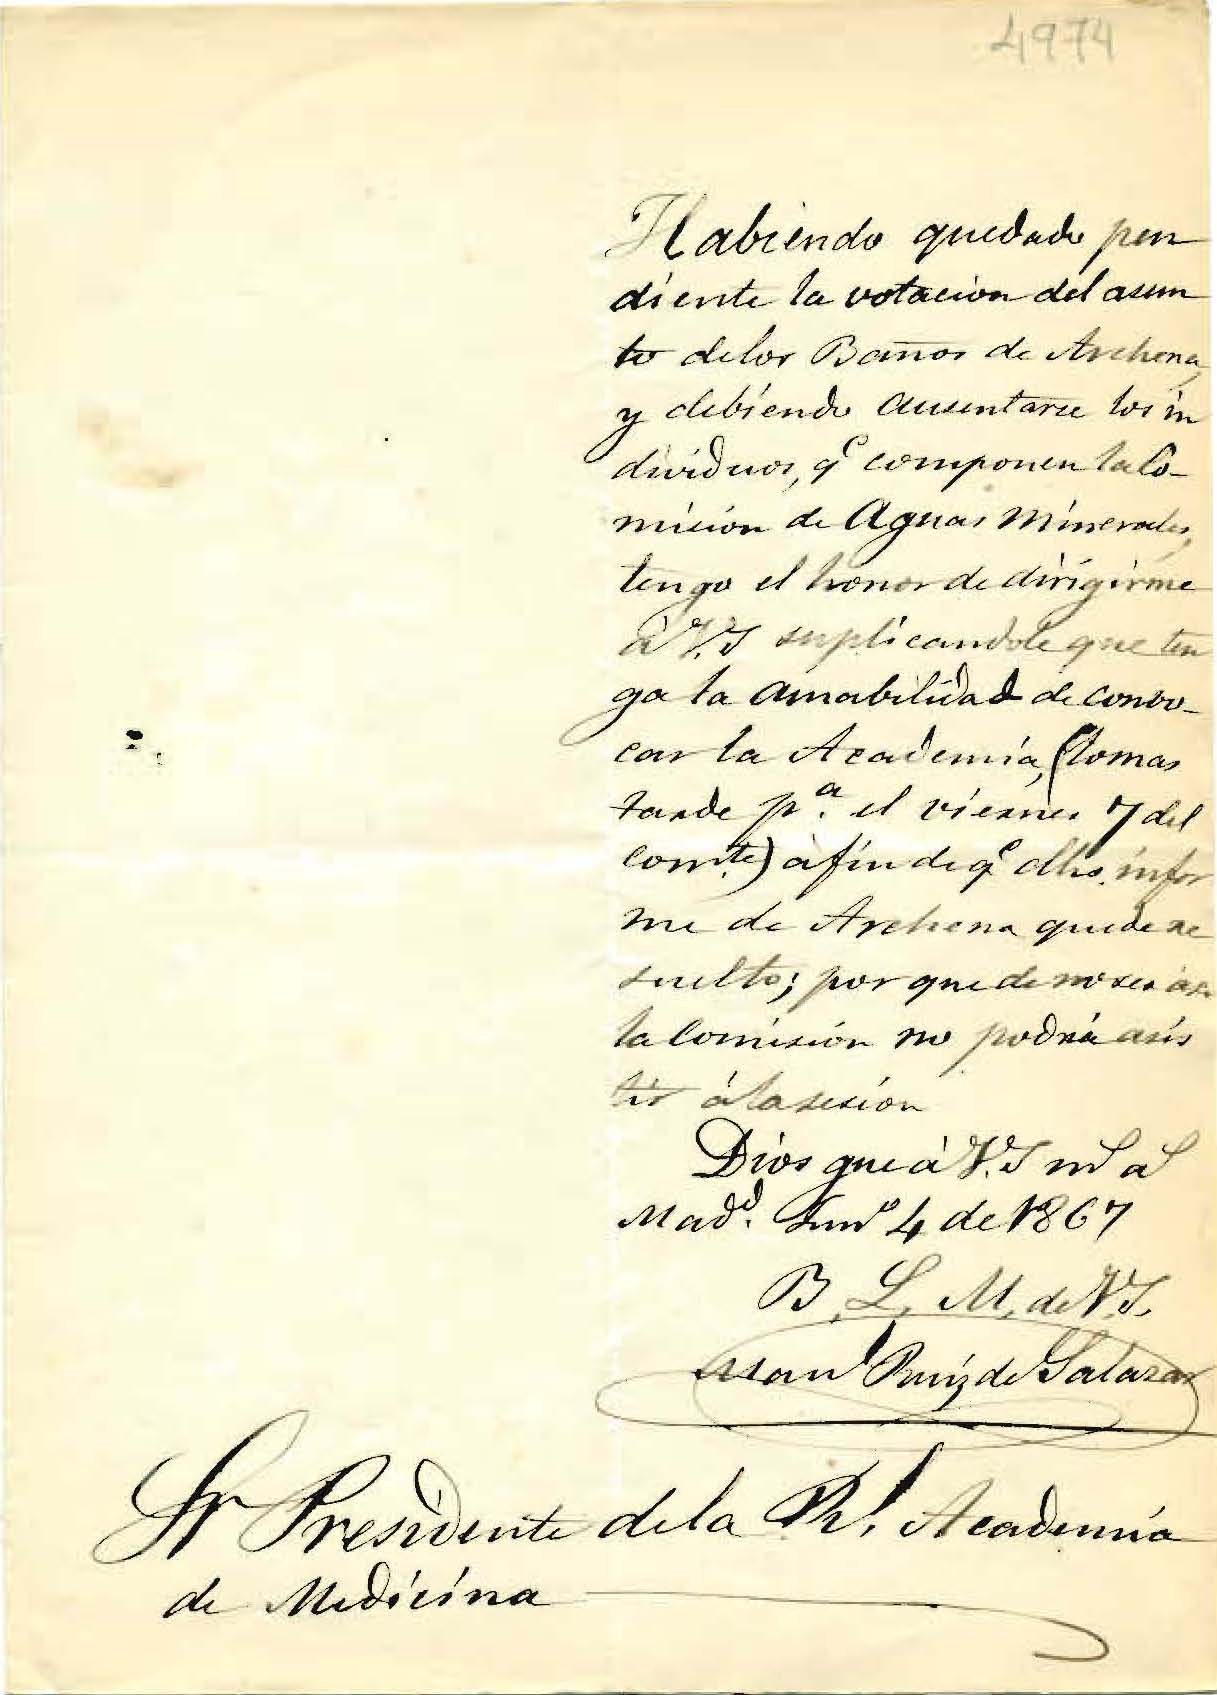 4974
Habiendo quedado pen
diente la votacion del asun
to delos Baños de Archena,
y debiendo ausentarse los in
dividuos, q.e componen la Co-
mision de Aguas Minerales,
tengo el honor de dirigirme
à V.S suplicandole que ten
ga la amabilidad de convo-
car la Academia, (lo mas
tarde p.a el viernes 7 del
corr.te) à fin de q.e dho. infor
me de Archena quede re
suelto; por que de no ser asi
la Comisión no podrá asis
tir á la sesión
Dios gue à V.S m.s a.s
Mad.d Jun.o 4 de 1867
B. L. M. de V.S.
Man.l Ruiz de Salazar
Sr Presidente de la R.l Academia
de Medicina